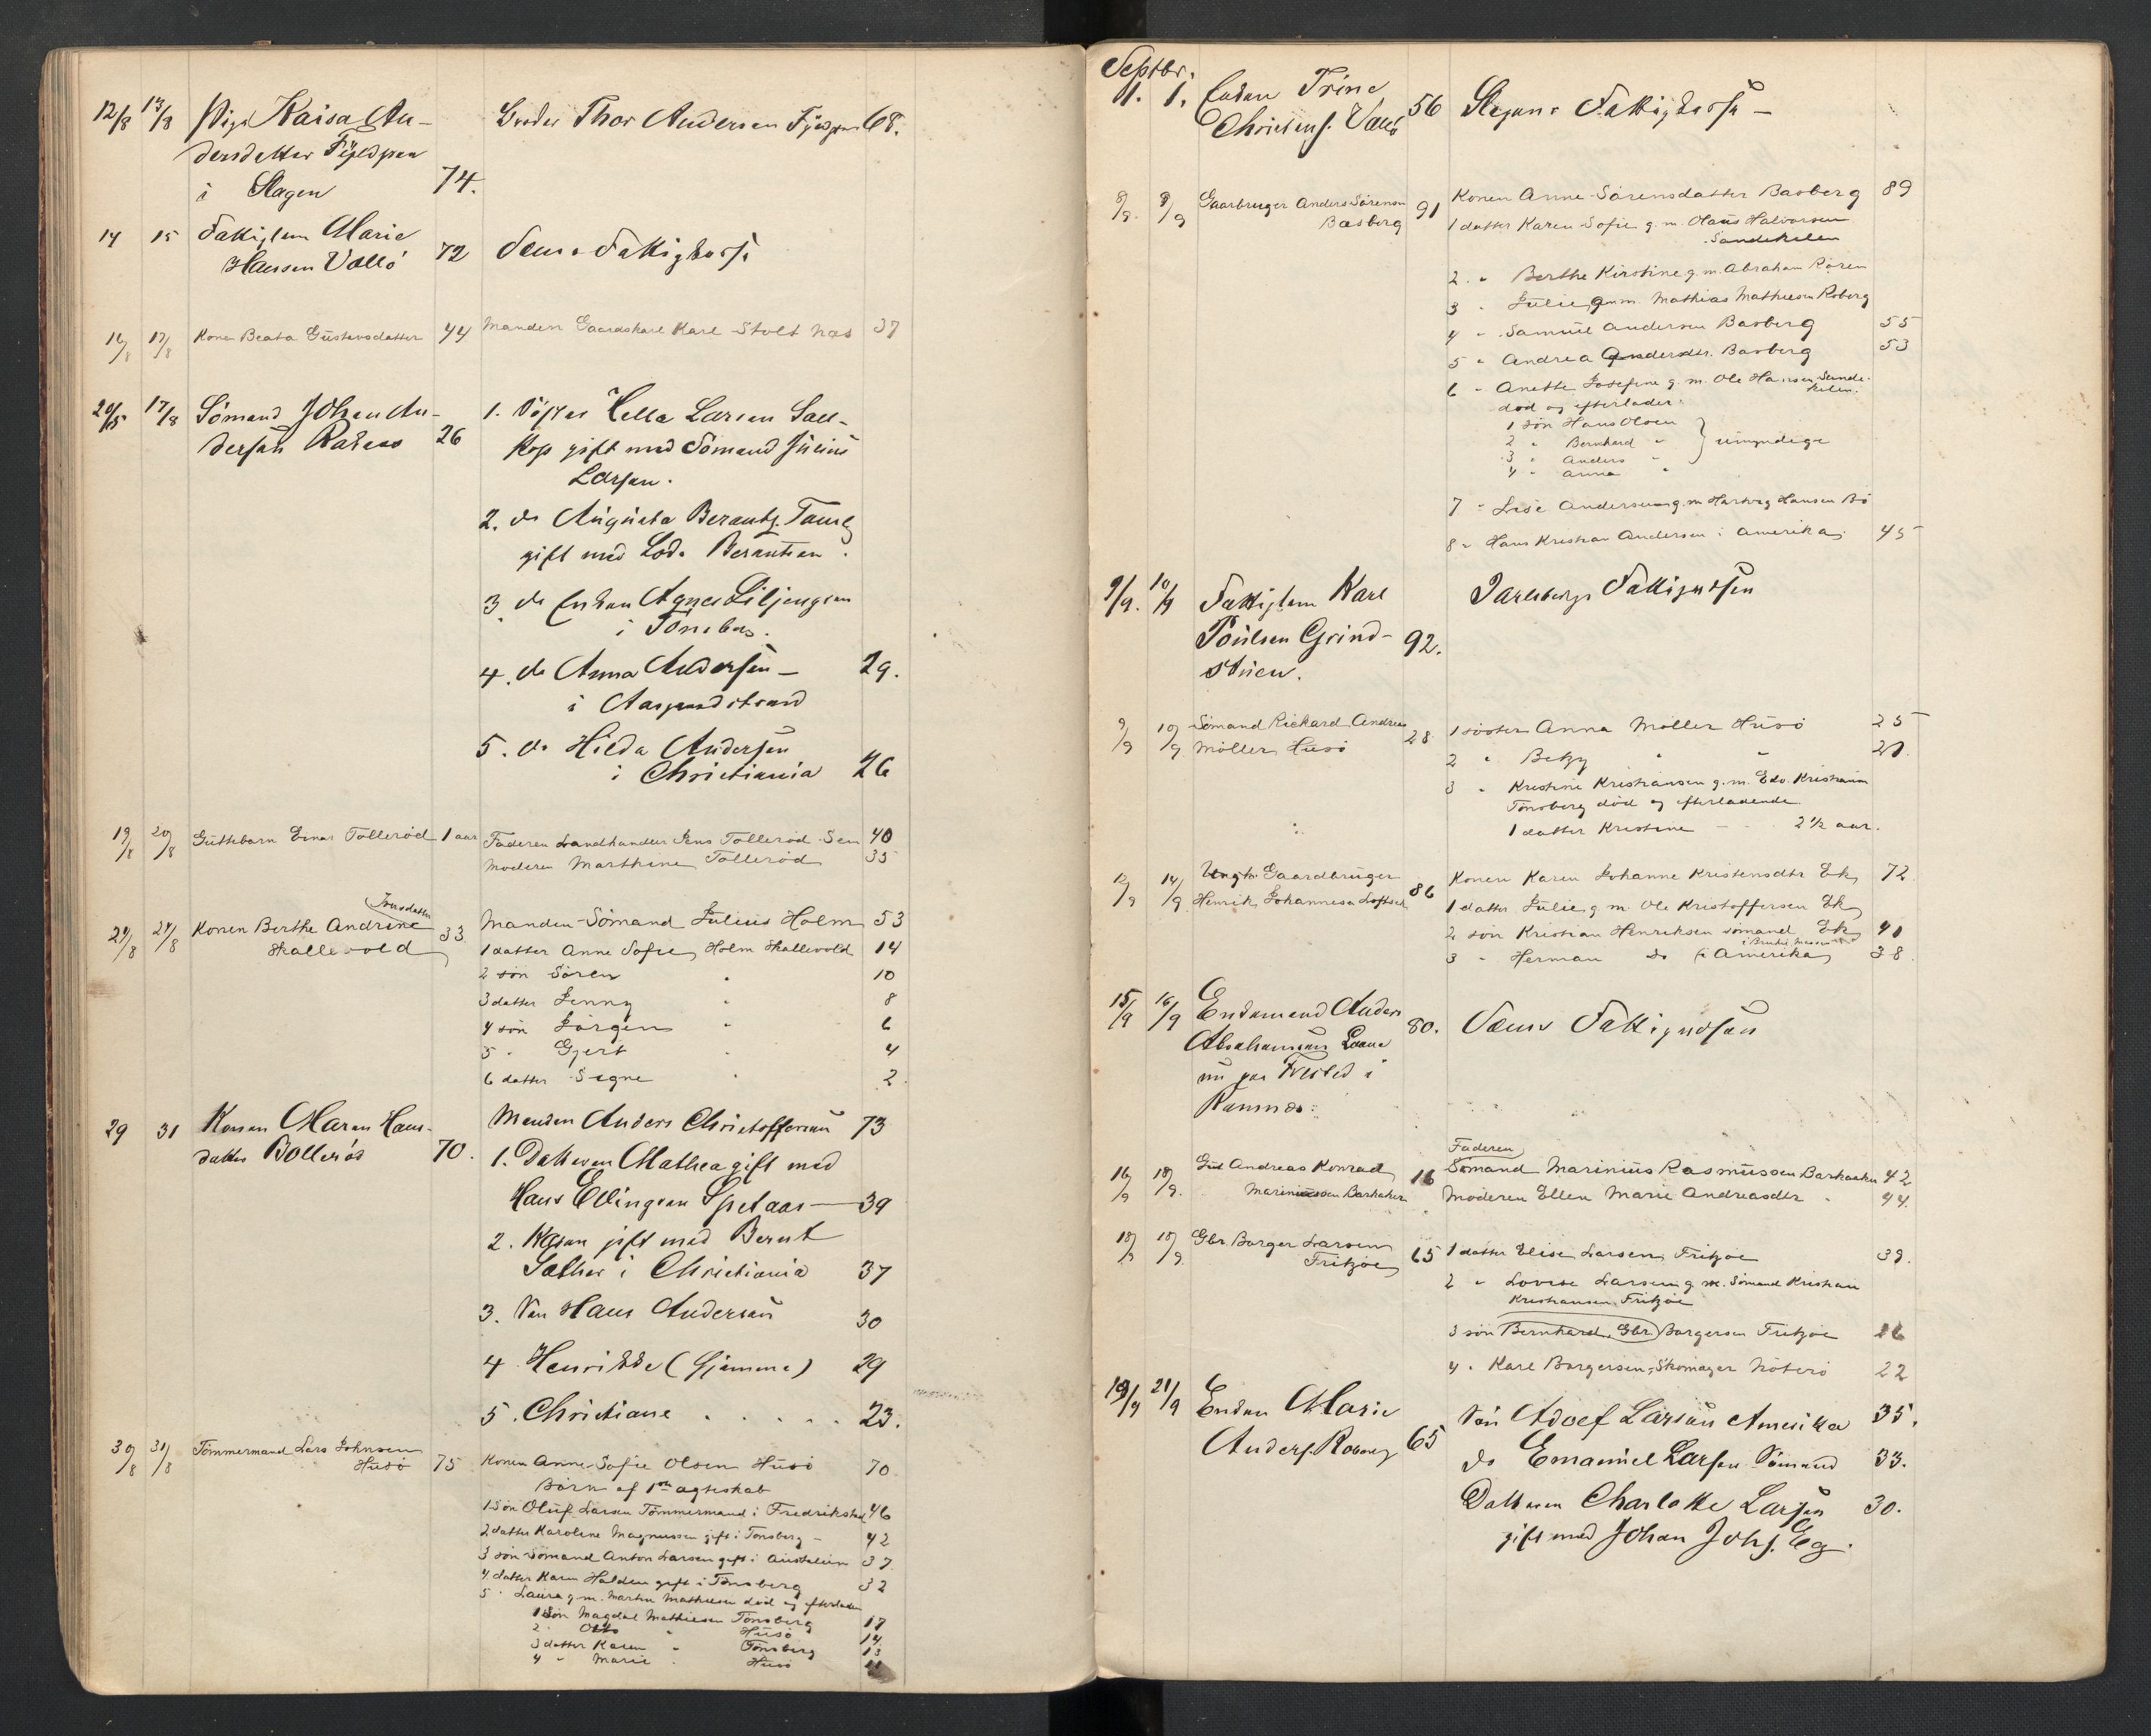 12/8 13/8 Pige Kaisa An- Broder Thor Andersen 68.
dersdatter
i Slagen 74.
14 15 Fattiglem Marie
Hansen Vallö 72 Sems Fattigkasse
16/8 17/8 Kone Beata Gustavsdatter 44 Manden Gaardskarl Karl Stolt Næs 37
20/5 17/8 Sömand Johan An- 1. Söster Hella Larsen
dersen 26 gift med Sömand Julius
Larsen.
2. do Augusta Berantz.
gift med Lods Berantsen.
3 do Enkan Agnes Liljengren
i Tönsberg.
4. do Anna Andersen — 29.
i Aasgaardstrand
5. do Hilda Andersen
i Christiania 26
19/8 20/8 Guttebarn Einar Tolleröd 1 aar Faderen Landhandler Jens Tolleröd Sem 40
Moderen Marthine Tolleröd 35
Jonsdatter
24/8 27/8 Konen Berthe Andrine 33 Manden Sömand Julius Holm 53
Skallevold 1 datter Anne Sofie Holm Skallevold 14
2 sön Sören " 10
3 datter Jenny " 8
4 sön Jörgen " 6
5 " Gjert " 4
6 datter Signe " 2.
29 31 Konen Maren Hans- Manden Anders Christoffersen 73
datter Bolleröd 70. 1. Datteren Mathea gift med
Hans Ellingsen Spetaas — 39
2. Karen gift med Bernt
Sæther i Christiania 37
3. Sön Hans Andersen 30
4 Henrikke (Hjemme) 29
5. Christiane . . . . . 23.
30/8 31/8 Tömmermand Lars Johnsen
Husö 75 Konen Anne Sofie Olsen Husö 70
Börn af 1ste ægteskab
1 Sön Oluf Larsen Tömmermand i Fredrikstad 46
2 datter Karoline Magnussen gift i Tönsberg — 42
3 sön Sömand Anton Larsen gift i Australien 37
4 datter Karen Halden gift i Tönsberg 32
5 " Laura g. m. Martin Mathisen död og efterlader
1 Sön Magdal Mathisen Tönsberg 17
2 " Otto " Husö 14
3 datter Karen " Tönsberg 13
4 " Marie " Husö
Septbr.
1. 1. Enken Trine 56 Slagens Fattigkasse —
Christens. Vallö
8/9 9/9 Gaarbruger Anders Sörensen 91 Konen Anne Sörensdatter Basberg 89
Basberg 1 datter Karen Sofie g. m. Olaus Halvorsen
Sandekilen
2 " Berthe Kirstine g. m. Abraham Rören
3 " Julie g. m. Mathias Mathiesen Roberg
4 " Samuel Andersen Basberg 55
5 " Andrea Andersdtr. Basberg 53
6 " Anette Josefine g. m. Ole Hansen Sande-
kilen.
död og efterlader:
1 sön Hans Olsen
2 " Bernhard " } umyndige
3 " Anders "
4 " Anna "
7 " Lise Andersen g. m. Hartvig Hansen Bö
8 " Hans Kristian Andersen i Amerika 45
9/9. 10/9 Fattiglem Karl Jarlsbergs Fattigvæsen
Poulsen Grind- 92.
stuen.
9/9 10/9 Sömand Rickard Andreas 28 1 söster Anna Möller Husö 25
Möller Husö 2 " Betzy " " 21.
3 " Kristine Kristiansen g. m. Edv. Kristiansen
Tönsberg död og efterladende
1 datter Kristine — 2½ aar.
12/9 14/9 Gaardbruger 86 Konen Karen Johanne Kristensdtr Ek 72
Henrik Johannesen 1 datter Julie g m Ole Kristoffersen Ek
2 sön Kristian Henriksen sömand Ek 41
3 " Herman do i Amerika 38
15/9 16/9 Enkemand Anders 80. Sems Fattigvæsen
Abrahamsen
nu paa Fristed i
Ramnæs.
Faderen
16/9 18/9. Gut Andreas Konrad 16 Sömand Marinius Rasmussen Barkaaker 42
Mariniussen Barkaker Moderen Ellen Marie Andreasdtr " 44.
18/9 18/9 Gbr. Borger Larsen 65 1 datter Elise Larsen Fritzöe 39.
Fritzöe 2 " Lovise Larsen g. m. Sömand Kristian
Kristiansen Fritzöe
3 sön Bernhard Gbr. Borgersen Fritzöe 26
4 " Karl Borgersen, Skomager Nöterö 22
19/9 21/9 Enken Marie 65 Sön Adolf Larsen Amerika 35.
Anders. Roberg do Emanuel Larsen Sömand 33.
Datteren Charlotte Larsen 30.
gift med Johan Johs. Eg.